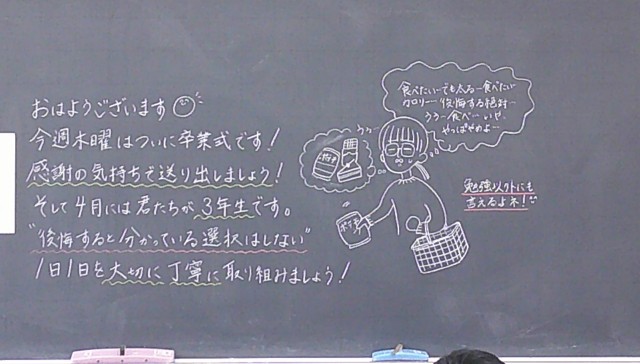 おはようございます
今週木曜はついに卒業式です！
感謝の気持ちで送り出しましょう！
そして4月には君たちが3年生です。
"後悔すると分かっている選択はしない"
1日1日を大切に丁寧に取り組みましょう！
食べたいーでも太るー食べたい
カロリー 後悔する絶対ー
うぅー食べーいや、
やっぱやめよー
うぅー
ポテチ
ポテチ
勉強以外にも
言えるよネ！